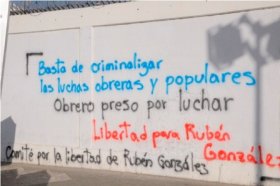 Basta de criminalizar
las luchas obreras y populares
Obrero preso por luchar
Libertad para Rubén
González
Comité por la libertad de Rubén Gonzáles